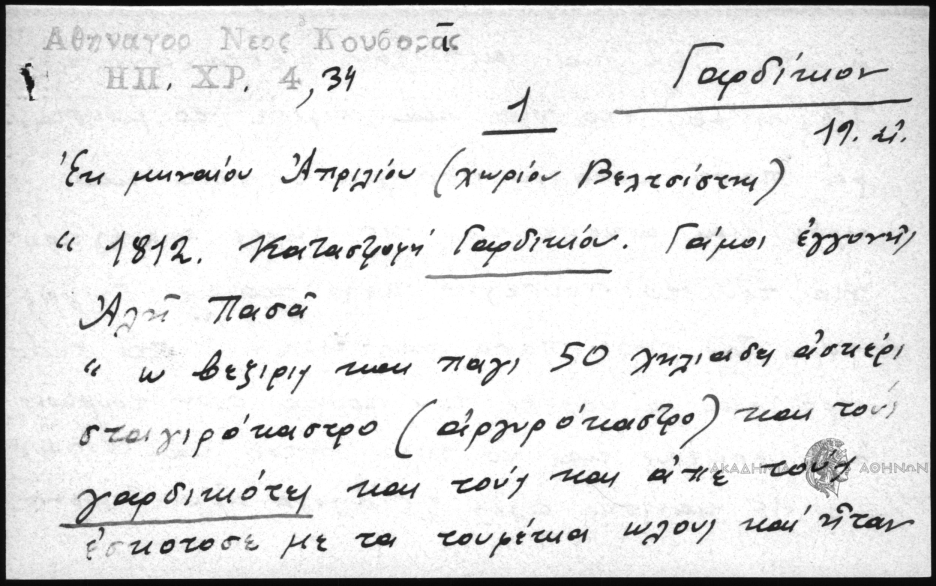 Αθηναγορ Νεος Κουβαρᾶς
ΗΠ. ΧΡ. 4, 34
Γαρδίκιον
1
19. αἰ.
Ἐκ μηναίου Ἀπριλίου (χωρίον Βελτσίστης)
“ 1812. Καταστροφή Γαρδικίου. Γάμοι ἐγγονῆς
Ἀλῆ Πασᾶ
“ ω βεζιρις και παγι 50 χηλιαδες ἀσκέρι
σταγιρόκαστρο (ἀργυρόκαστρο) και τούς
γαρδικιότες και τούς και ἀπε τούς
ΑΚΑΔΗΜΙΑ ΑΘΗΝΩΝ
ἐσκοτοσε με τα τουφέκια ωλους και ἦταν